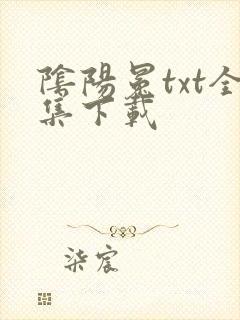 陰陽冕txt全
集下載
柒宸